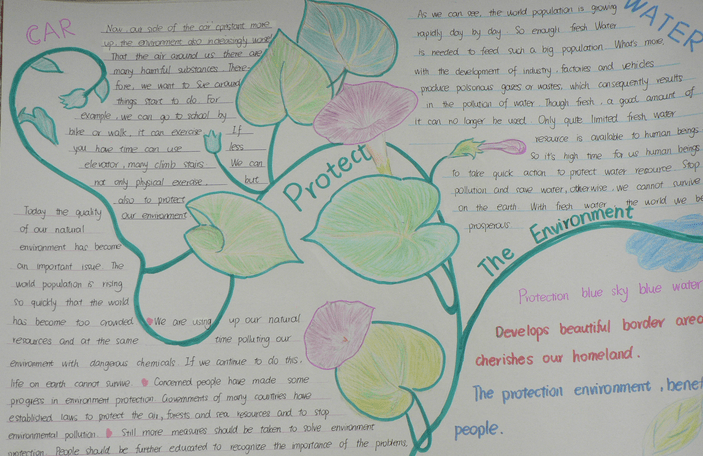 CAR
Now our side of the car constant more
up, the environment also increasingly worse
That the air around us there are
many harmful substances. There-
fore, we want to Sve around
things start to do. For
example, we can go to school by
bike or walk, it can exercise. If
you have time can use less
elevator, many climb stairs. We can
not only physical exercise, but
also to protect
our environment
Today the quality
of our natural
environment has become
an important issue. The
world population is rising
so quickly that the world
has become too crowded. We are using up our natural
resources and at the same time polluting our
environment with dangerous chemicals. If we continue to do this,
life on earth cannot survive. Concerned people have made some
progress in environment protection. Governments of many countries have
established laws to protect the air, forests and sea resources and to stop
environmental pollution. Still more measures should be taken to solve environment
protection. People should be further educated to recognize the importance of the problems,
Protect
The Environment
WATER
As we can see, the world population is growing
rapidly day by day. So enough fresh Water
is needed to feed such a big population. What's more,
with the development of industry, factories and vehicles
produce poisonous gases or wastes, which consequently results
in the pollution of water. Though fresh, a good amount of
it can no longer be used. Only quite limited fresh water
resource is available to human beings
So it's high time for us human beings
to take quick action to protect water resource. Stop
pollution and save water, otherwise, we cannot survive
on the earth. With fresh water, the world we be
prosperous.
Protection blue sky blue water
Develops beautiful border area
cherishes our homeland.
The protection environment, benef
people.